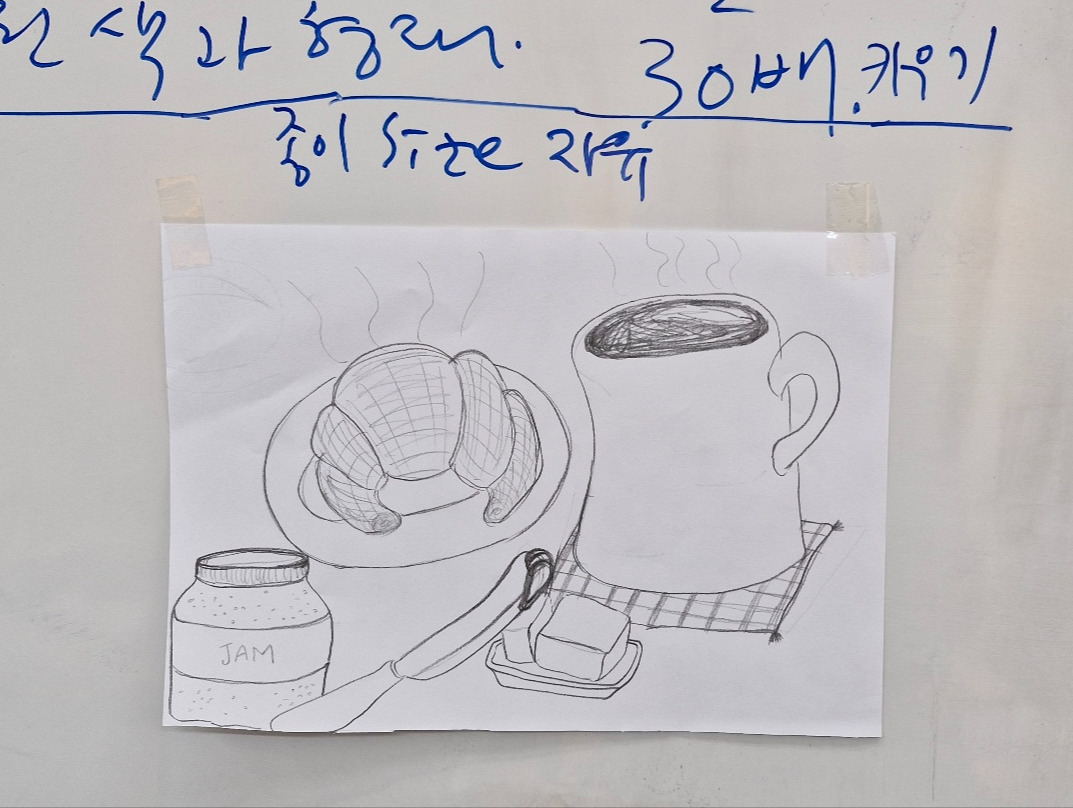 색과 형태.
30배. 키우기
종이 size 자유
JAM